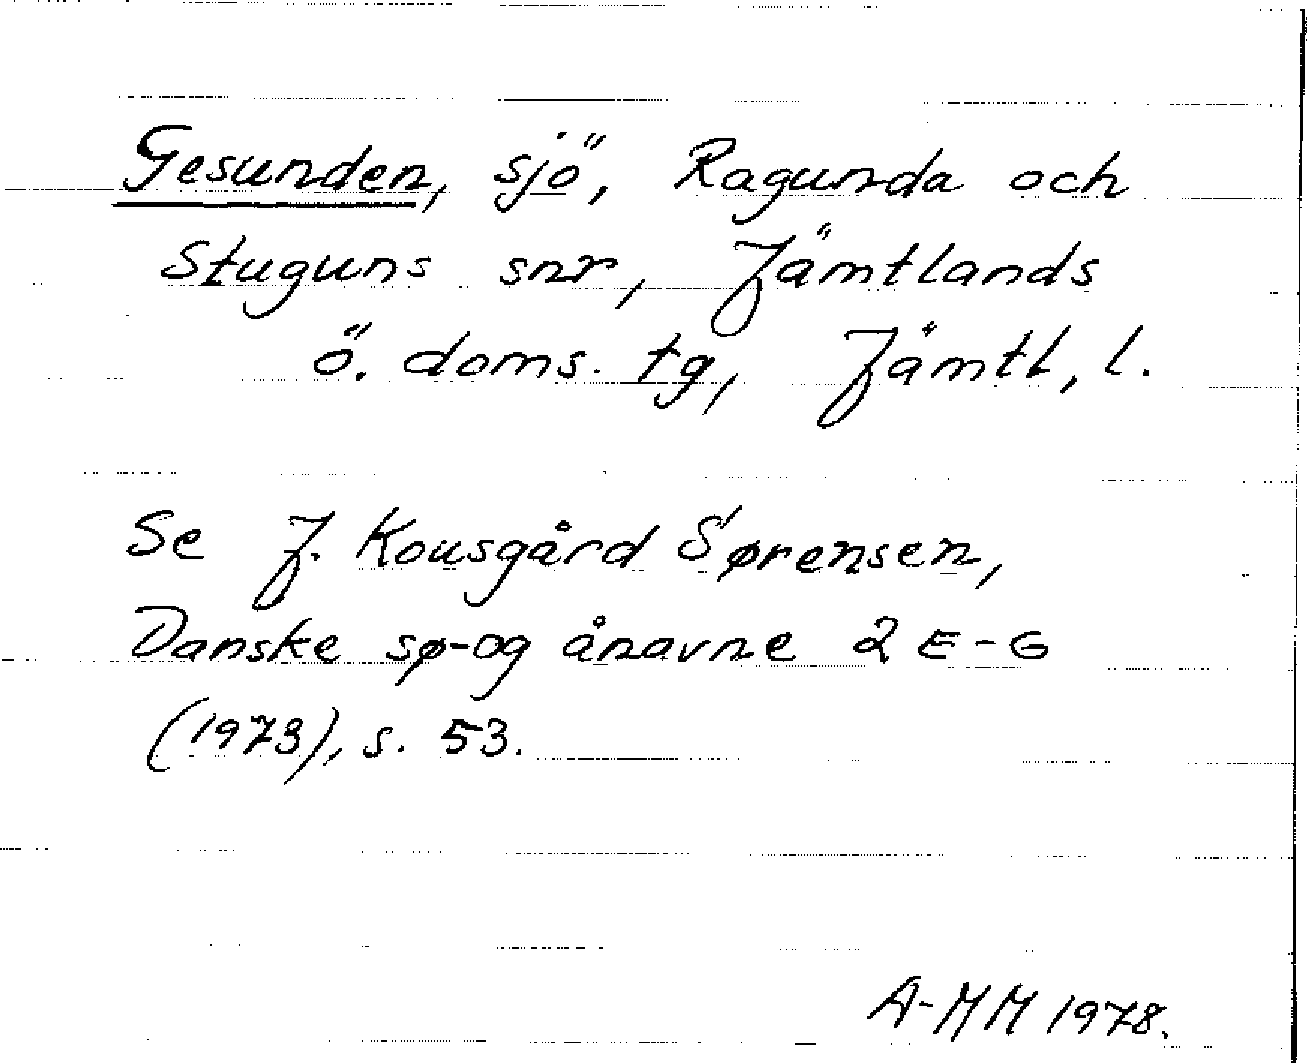 Gesunden, sjö, Ragunda och
Stuguns snr, Jämtlands
ö. doms. tg, Jämtl, l.
Se J. Kousgård Sørensen,
Danske sø-og ånavne 2 E-G
(1973), s. 53.
A-MM 1978.